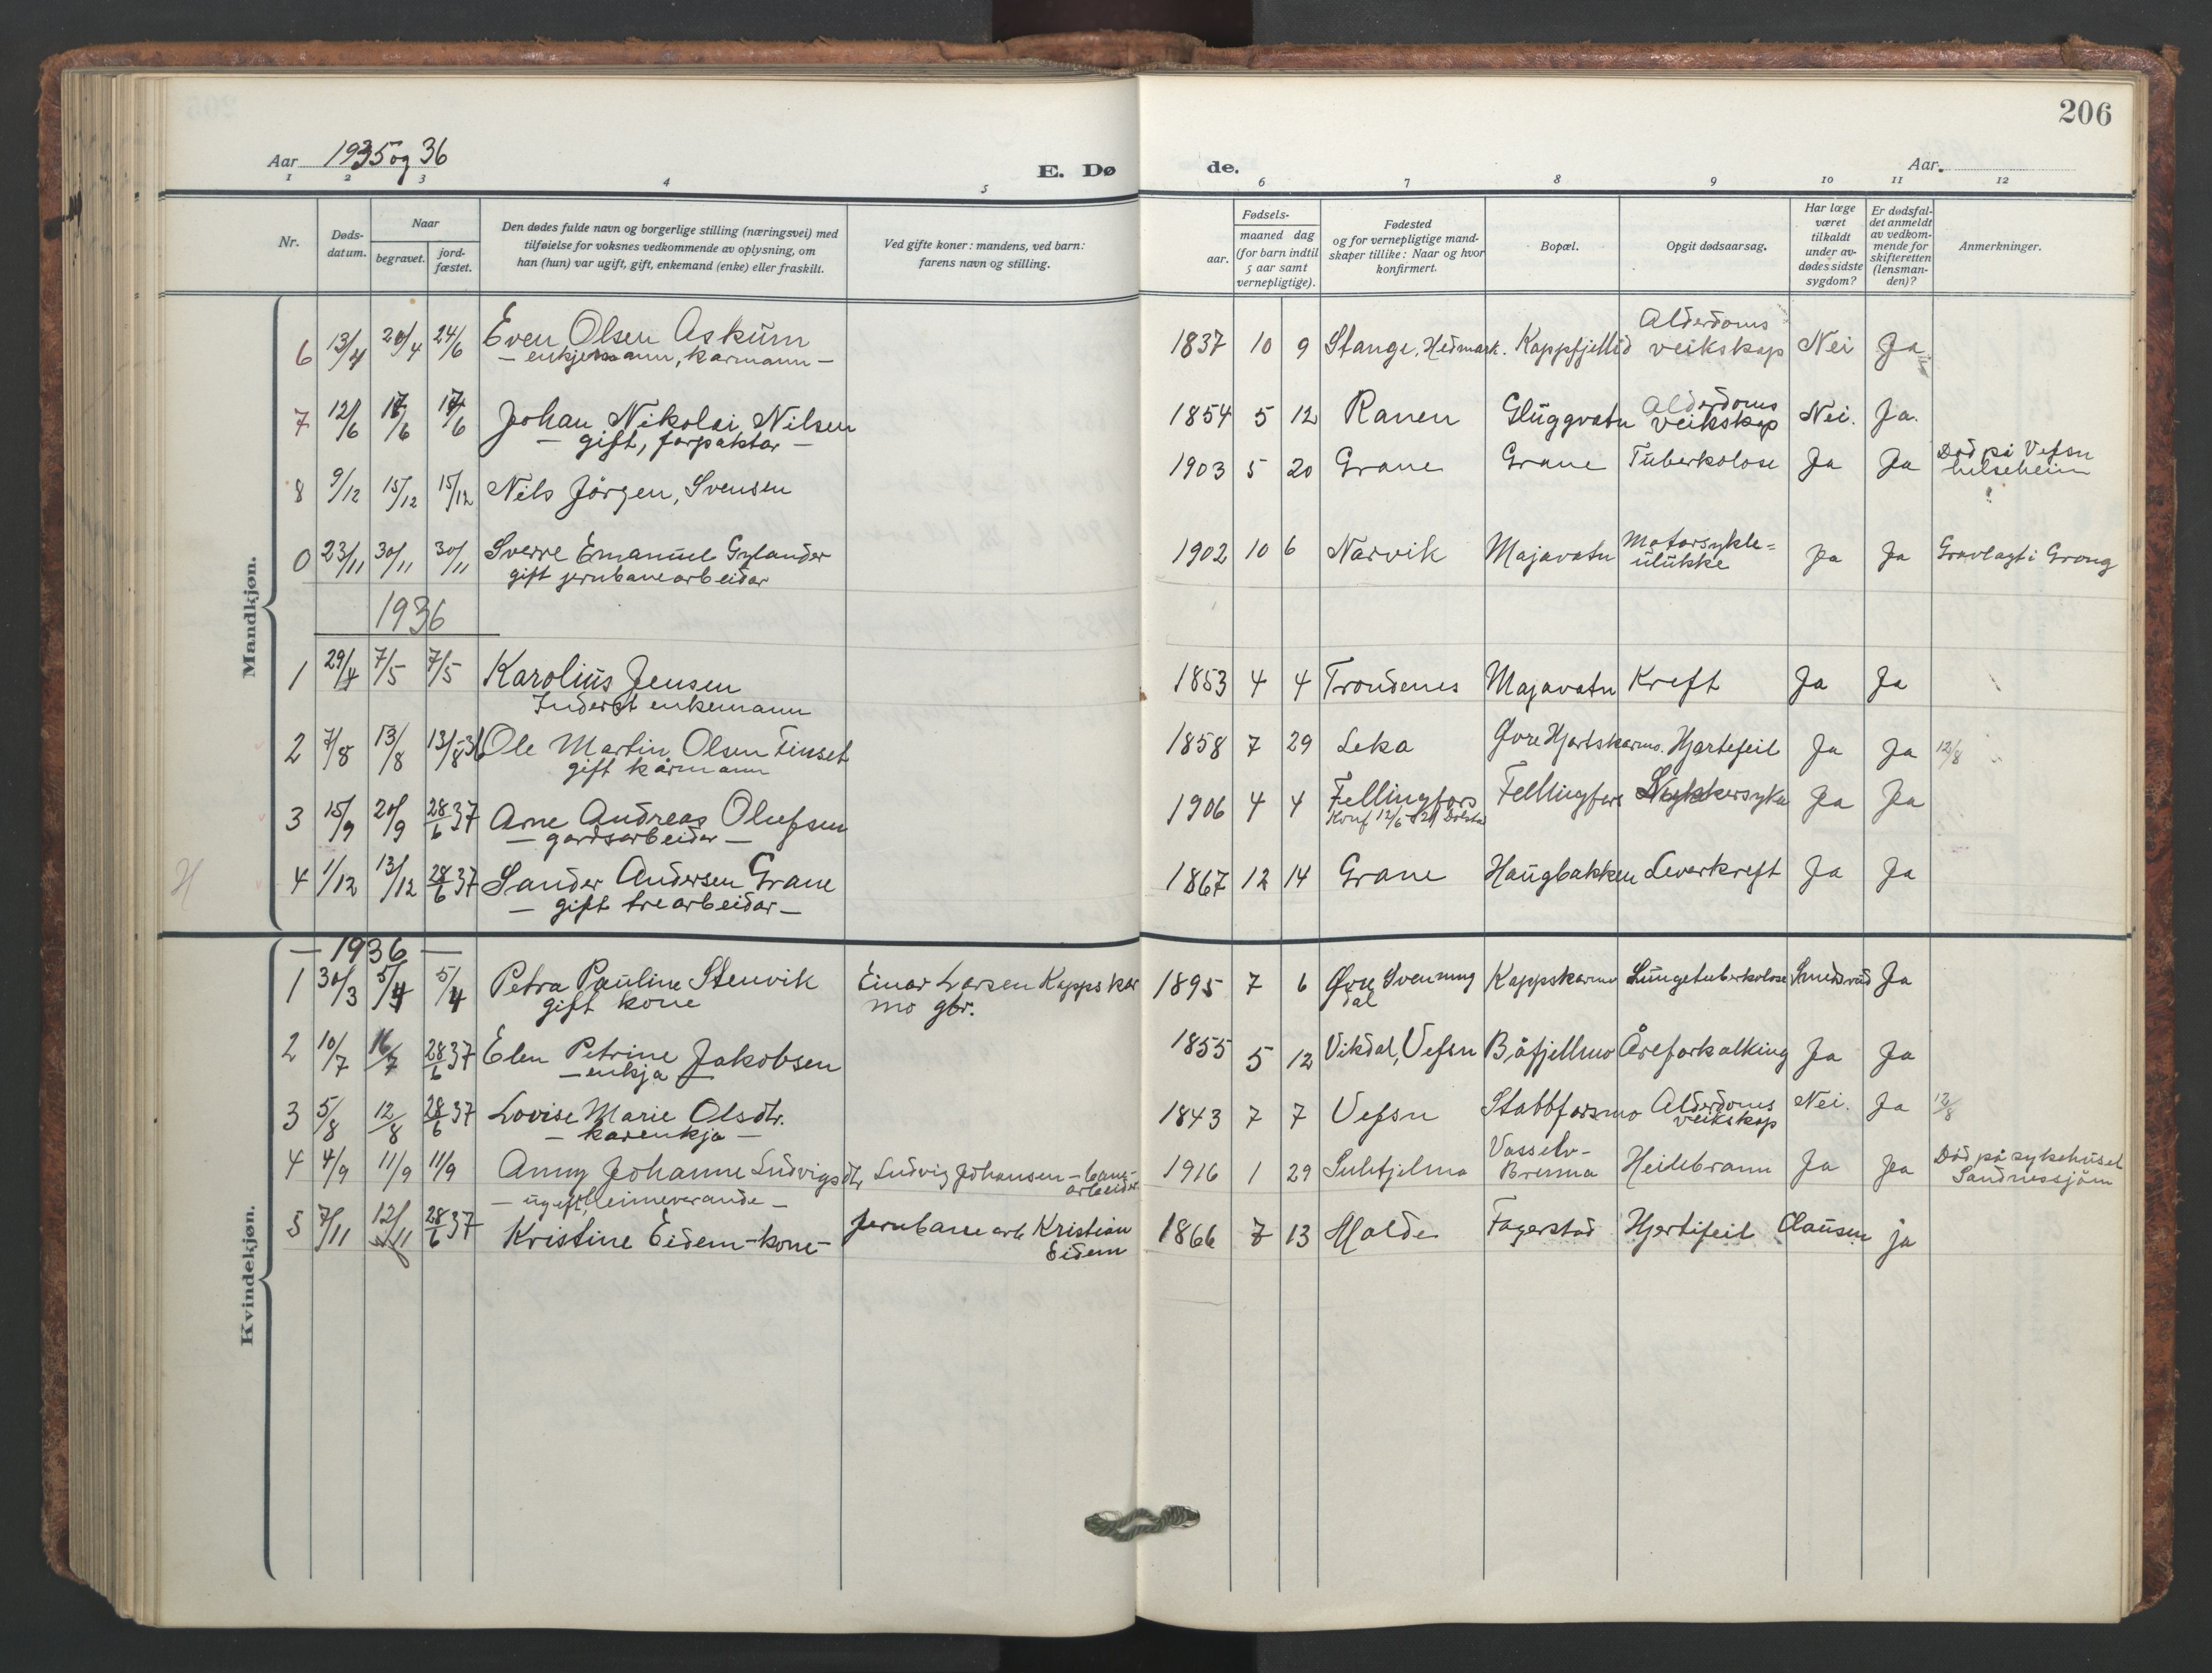 206
Aar 1935 og 36
E. Dø
de.
Aar.
1 2 3 4 5 6 7 8 9 10 11 12
Nr.
Døds-datum.
Naar
begravet.
jord-fæstet.
Den dødes fulde navn og borgerlige stilling (næringsvei) med
tilføielse for voksnes vedkommende av oplysning, om
han (hun) var ugift, gift, enkemand (enke) eller fraskilt.
Ved gifte koner: mandens, ved barn:
farens navn og stilling.
Fødsels-
aar.
maaned dag
(for barn indtil
5 aar samt
vernepligtige).
Fødested
og for vernepligtige mand-
skaper tillike: Naar og hvor
konfirmert.
Bopæl.
Opgit dødsaarsag.
Har læge
været
tilkaldt
under av-
dødes sidste
sygdom?
Er dødsfal-
det anmeldt
av vedkom-
mende for
skifteretten
(lensman-
den)?
Anmerkninger.
Mandkjøn.
6 13/4 20/4 24/6 Even Olsen Askum 1837 10 9 Stange, Hedmark. Kappfjellid Alderdoms veikskap Nei Ja
— enkjemann, kårmann —
7 12/6 17/6 17/6 Johan Nikolai Nilsen 1854 5 12 Ranen Gluggvatn Alderdoms veikskap Nei. Ja.
— gift, forpaktar —
8 9/12 15/12 15/12 Nils Jörgen, Svensen 1903 5 20 Grane Grane Tuberkolose Ja Ja Död på Vefsn helseheim
0 23/11 30/11 30/11 Sverre Emanuel Gylander 1902 10 6 Narvik Majavatn Motorsykle=ulukke Ja Ja Gravlagt i Grong
gift jernbanearbeidar
1936
1 29/4 7/5 7/5 Karolius Jensen 1853 4 4 Trondenes Majavatn Kreft Ja Ja
Inderst enkemann
2 7/8 13/8 13/8-36 Ole Martin Olsen Finset 1858 7 29 Leka Øvre Hjortskarmo. Hjartefeil Ja Ja 12/8
gift kårmann
3 15/9 20/9 28/6 37 Arne Andreas Olufsen 1906 4 4 Fellingfors Fellingfors Ja Ja
— gardsarbeidar — Konf 12/6 - 21 Dolstad
H 4 1/12 13/12 28/6 37 Sander Andersen Grane 1867 12 14 Grane Haugbakken Leverkreft Ja Ja
— gift trearbeidar —
Kvindekjøn.
— 1936 —
1 30/3 5/4 5/4 Petra Pauline Stenvik Einar Larsen Kappskar 1895 7 6 Øvre Svenning Kappskarmo Lungetuberkolose Smedsrud Ja
gift kone mo gbr. dal
2 10/7 16/7 28/6 37 Elen Petrine Jakobsen 1855 5 12 Vikdal, Vefsn Båfjellmo Åreforkalking Ja Ja
— enkja —
3 5/8 12/8 28/6 37 Lovise Marie Olsdtr. 1843 7 7 Vefsn Stabbforsmo Alderdoms veikskap Nei. Ja 12/8
— kårenkja —
4 4/9 11/9 11/9 Anny Johanne Ludvigsdtr Ludvig Johansen — bane-arbeider 1916 1 29 Sulitjelma Vasselv-Bremna Heilebrann Ja Ja Död på sykehuset Sandnessjöen
— ugift, heimeverande —
5 7/11 12/11 28/6 37 Kristine Eidem - kone - Jernbanearb Kristian Eidem 1866 7 13 Molde Fagerstad Hjertefeil Clausen ja